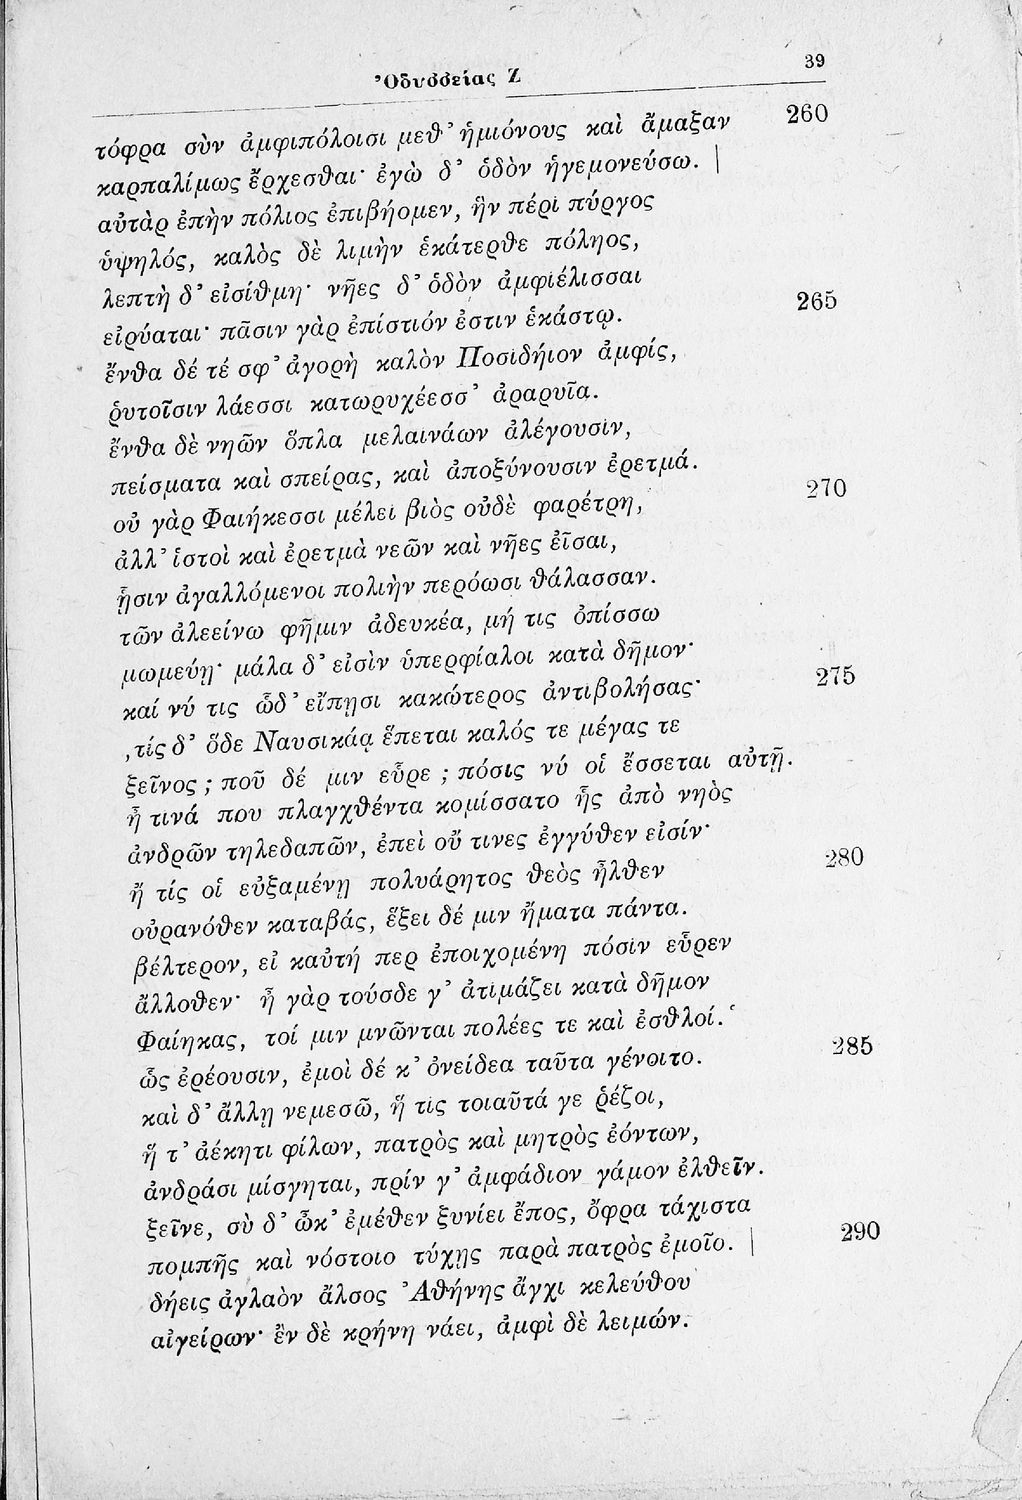 Ὀδυσσείας Ζ 39
τόφρα σὺν ἀμφιπόλοισι μεθ' ἡμιόνους καὶ ἄμαξαν 260
καρπαλίμως ἔρχεσθαι· ἐγὼ δ' ὁδὸν ἡγεμονεύσω. |
αὐτὰρ ἐπὴν πόλιος ἐπιβήομεν, ἣν πέρι πύργος
ὑψηλός, καλὸς δὲ λιμὴν ἑκάτερθε πόληος,
λεπτὴ δ' εἰσίθμη· νῆες δ' ὁδὸν ἀμφιέλισσαι
εἰρύαται· πᾶσιν γὰρ ἐπίστιόν ἐστιν ἑκάστῳ. 265
ἔνθα δέ τέ σφ' ἀγορὴ καλὸν Ποσιδήιον ἀμφίς,
ῥυτοῖσιν λάεσσι κατωρυχέεσσ' ἀραρυῖα.
ἔνθα δὲ νηῶν ὅπλα μελαινάων ἀλέγουσιν,
πείσματα καὶ σπείρας, καὶ ἀποξύνουσιν ἐρετμά.
οὐ γὰρ Φαιήκεσσι μέλει βιὸς οὐδὲ φαρέτρη, 270
ἀλλ' ἱστοὶ καὶ ἐρετμὰ νεῶν καὶ νῆες ἐῖσαι,
ᾗσιν ἀγαλλόμενοι πολιὴν περόωσι θάλασσαν.
τῶν ἀλεείνω φῆμιν ἀδευκέα, μή τις ὀπίσσω
μωμεύῃ· μάλα δ' εἰσὶν ὑπερφίαλοι κατὰ δῆμον·
καί νύ τις ὧδ' εἴπῃσι κακώτερος ἀντιβολήσας· 275
‚τίς δ' ὅδε Ναυσικάᾳ ἕπεται καλός τε μέγας τε
ξεῖνος; ποῦ δέ μιν εὗρε; πόσις νύ οἱ ἔσσεται αὐτῇ.
ἦ τινά που πλαγχθέντα κομίσσατο ἧς ἀπὸ νηὸς
ἀνδρῶν τηλεδαπῶν, ἐπεὶ οὔ τινες ἐγγύθεν εἰσίν·
ἤ τίς οἱ εὐξαμένῃ πολυάρητος θεὸς ἦλθεν 280
οὐρανόθεν καταβάς, ἕξει δέ μιν ἤματα πάντα.
βέλτερον, εἰ καὐτή περ ἐποιχομένη πόσιν εὗρεν
ἄλλοθεν· ἦ γὰρ τούσδε γ' ἀτιμάζει κατὰ δῆμον
Φαίηκας, τοί μιν μνῶνται πολέες τε καὶ ἐσθλοί.‘
ὣς ἐρέουσιν, ἐμοὶ δέ κ' ὀνείδεα ταῦτα γένοιτο. 285
καὶ δ' ἄλλῃ νεμεσῶ, ἥ τις τοιαῦτά γε ῥέζοι,
ἥ τ' ἀέκητι φίλων, πατρὸς καὶ μητρὸς ἐόντων,
ἀνδράσι μίσγηται, πρίν γ' ἀμφάδιον γάμον ἐλθεῖν.
ξεῖνε, σὺ δ' ὦκ' ἐμέθεν ξυνίει ἔπος, ὄφρα τάχιστα
πομπῆς καὶ νόστοιο τύχῃς παρὰ πατρὸς ἐμοῖο. | 290
δήεις ἀγλαὸν ἄλσος Ἀθήνης ἄγχι κελεύθου
αἰγείρων· ἐν δὲ κρήνη νάει, ἀμφὶ δὲ λειμών.